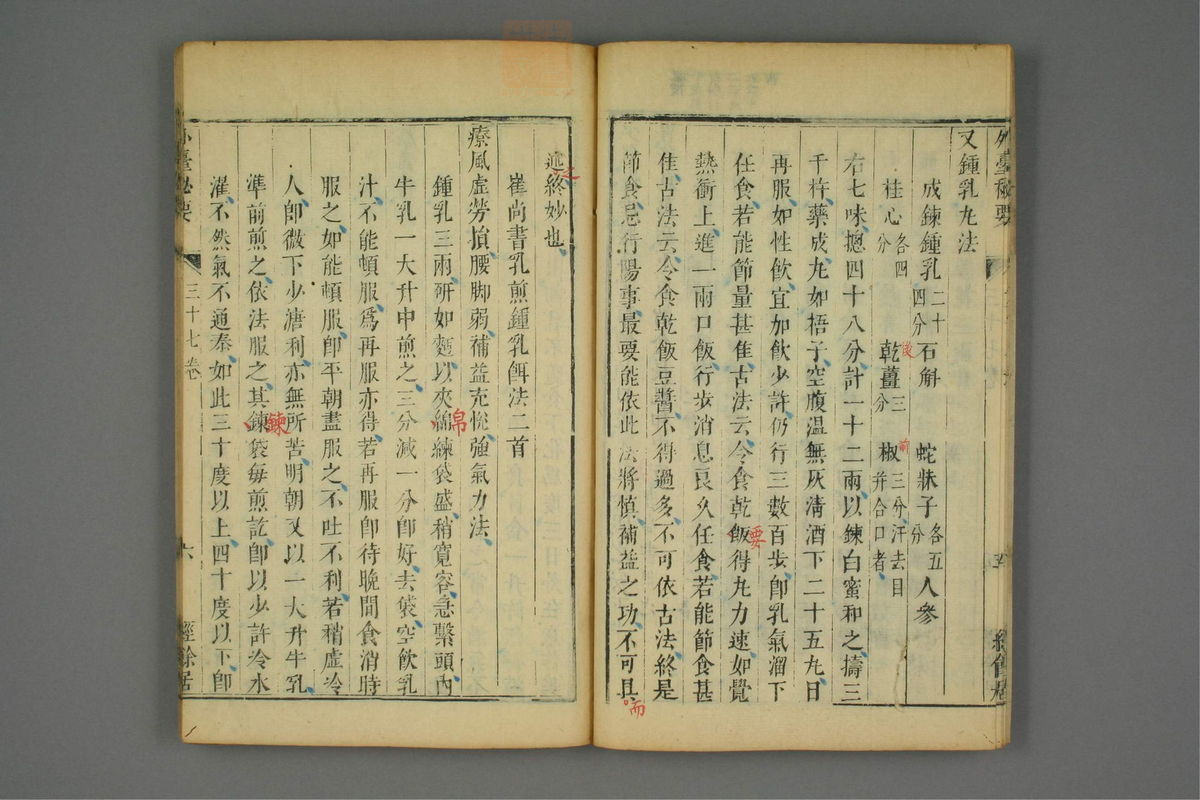 外臺秘要
又鍾乳丸法
成鍊鍾乳二十四分 石斛 蛇牀子各五分 人參
桂心各四分 乾薑三分 椒三分汗去目并合口者
後
前
右七味摠四十八分計一十二兩以鍊白蜜和之擣三
千杵藥成丸如梧子空腹溫無灰清酒下二十五丸日
再服如性飲宜加飲少許仍行三數百步卽乳氣溜下
任食若能節量甚佳古法云令食乾飯得丸力速如覺
要
熱衝上進一兩口飯行步消息良久任食若能節食甚
佳古法云令食乾飯豆醬不得過多不可依古法終是
節食忌行陽事最要能依此法將慎補益之功不可具
喻
述終妙也
之
崔尚書乳煎鍾乳餌法二首
療風虛勞損腰脚弱補益充悅強氣力法
鍾乳三兩研如麵以夾綿練袋盛稍寬容急繫頭內
帛
牛乳一大升中煎之三分減一分卽好去袋空飲乳
汁不能頓服爲再服亦得若再服卽待晚間食消時
服之如能頓服卽平朝盡服之不吐不利若稍虛冷
人卽微下少溏利亦無所苦明朝又以一大升牛乳
準前煎之依法服之其鍊袋每煎訖卽以少許冷水
鍊
濯不然氣不通泰如此三十度以上四十度以下卽
外臺秘要 三十七卷 六 經餘居